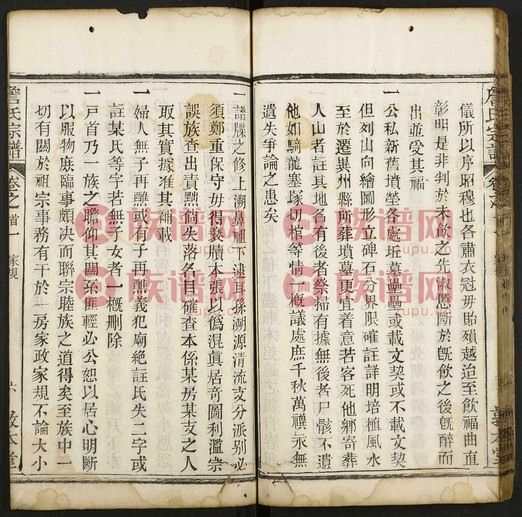 儀所以序昭穆也各肅衣冠毋貽殞越迨至飲福曲直
彰明是非判於未飲之先淑慝斷於旣飲之後旣醉而
出並受其福
一公私新舊墳塋各處坵墓纍纍或載文契或不載文契
但列山向繪圖形立碑石分界限確註詳明培植風水
至於遷異州縣所葬墳墓更宜着意若客死他鄉寄葬
人山者註其地名有後者祭掃有據無後者尸骸不遺
他如騎龍塞塚切棺等情一概議處庶千秋萬禩永無
遺失爭論之患矣
一譜牒之修上溯鼻祖下逮耳孫溯源清流支分派別必
須鄭重保守毋得褻瀆本張以僞混眞居奇圖利濫宗
誤族查出責黜倘失落名目確查本係某房某支之人
取其實據准其補載
一婦人無子再醮或有子再醮義犯廟絶註氏失二字或
註某氏等字若無子女者一槪刪除
一戸首乃一族之瞻仰其關系匪輕必公恕以居心明斷
以服物庶臨事頗决而聯宗睦族之道得矣至族中一
切有關於祖宗事務有干於 房家政家規不論大小
詹氏宗譜
卷之首一
家規
六
敦本堂
族譜网
zupu.cn